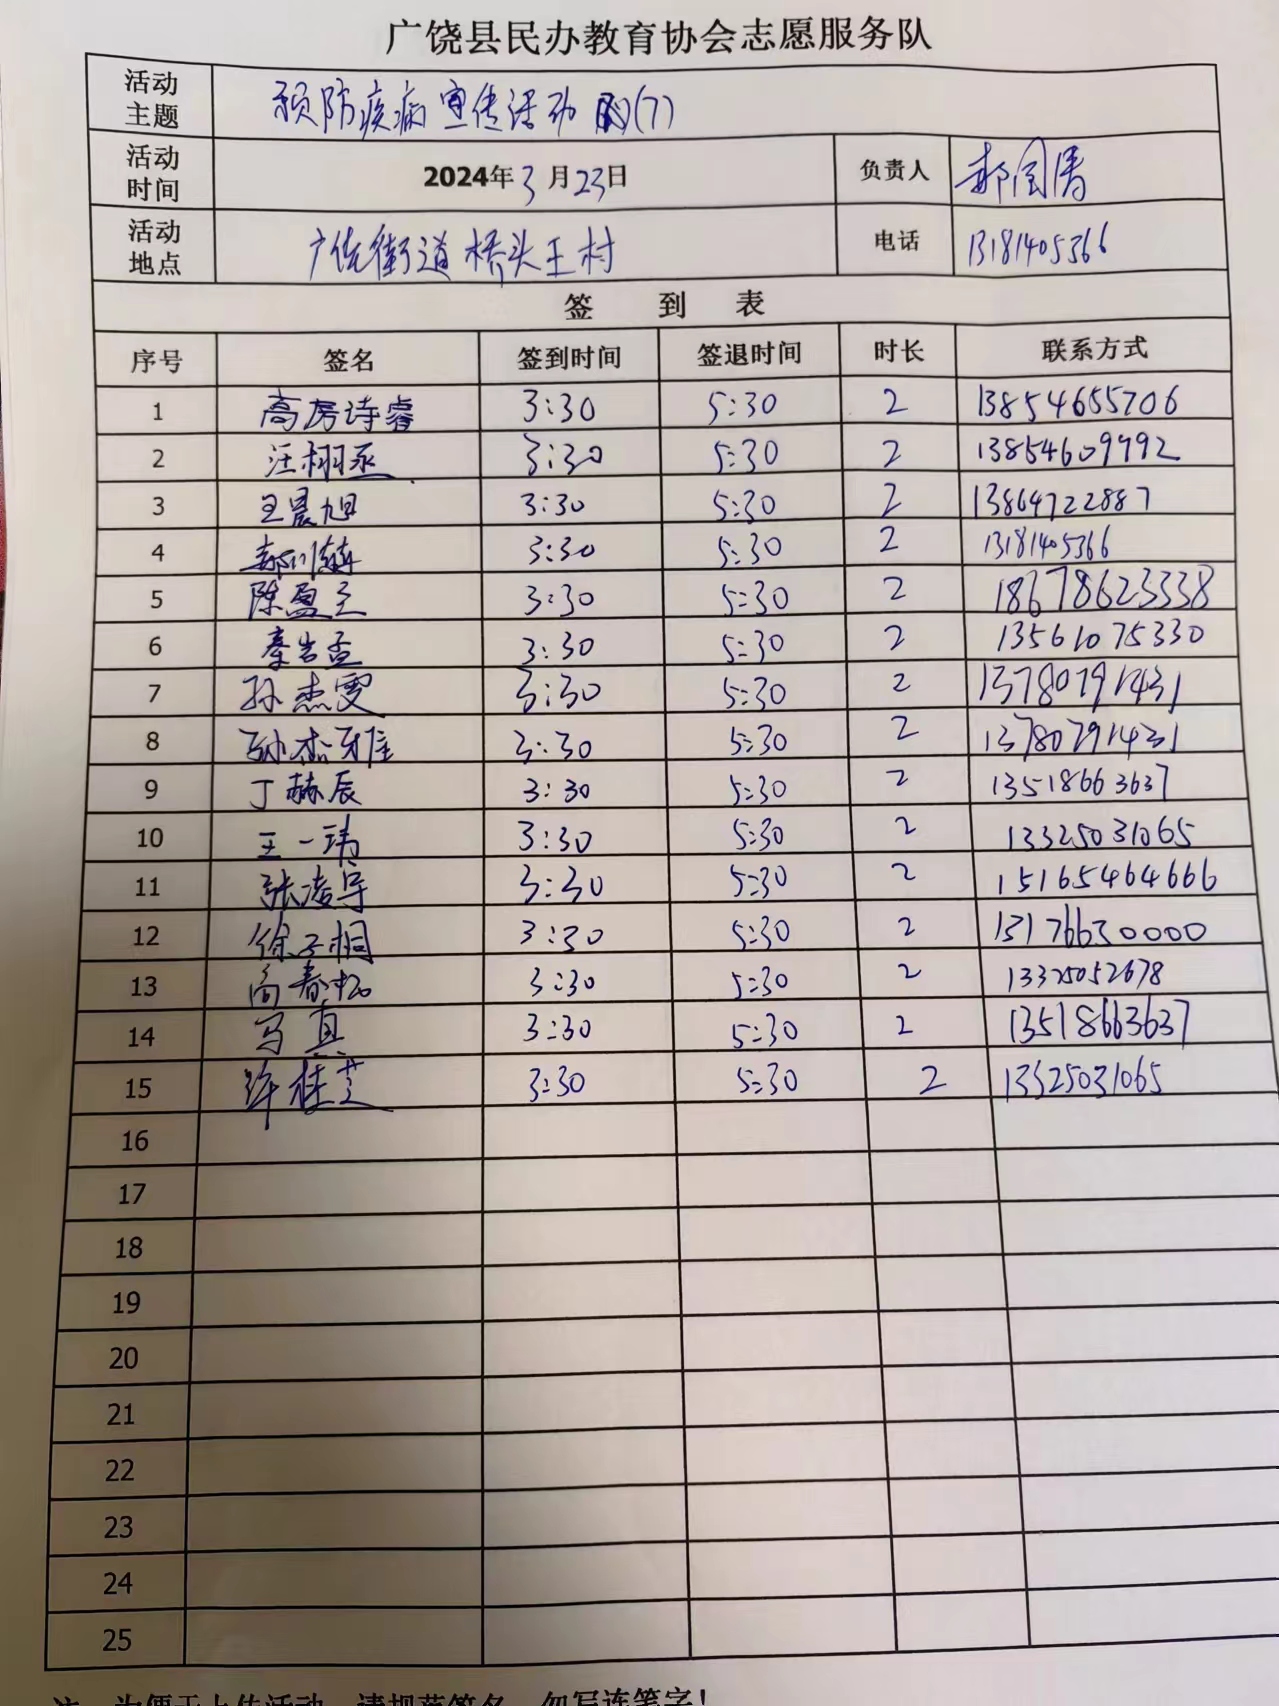 广饶县民办教育协会志愿服务队
活动主题 预防疾病宣传活动(7)
活动时间 2024年3月23日 负责人 郝国秀
活动地点 广饶街道桥头王村 电话 13181405366
签 到 表
序号 签名 签到时间 签退时间 时长 联系方式
1 高房诗睿 3:30 5:30 2 13854655706
2 汪栩丞 3:30 5:30 2 13854609992
3 王晨旭 3:30 5:30 2 13864722887
4 3:30 5:30 2 13181405366
5 陈盈王 3:30 5:30 2 18678623338
6 秦岩孟 3:30 5:30 2 13561075330
7 孙杰雯 3:30 5:30 2 13780791431
8 孙杰雅 3:30 5:30 2 13780791431
9 丁赫辰 3:30 5:30 2 13518663637
10 王一玮 3:30 5:30 2 13325031065
11 张凌导 3:30 5:30 2 15165464666
12 徐子桐 3:30 5:30 2 13176630000
13 尚春松 3:30 5:30 2 13325052678
14 马真 3:30 5:30 2 13518663637
15 许桂芝 3:30 5:30 2 13325031065
16
17
18
19
20
21
22
23
24
25
注：为便于上传活动，请规范签名，勿写连笔字！